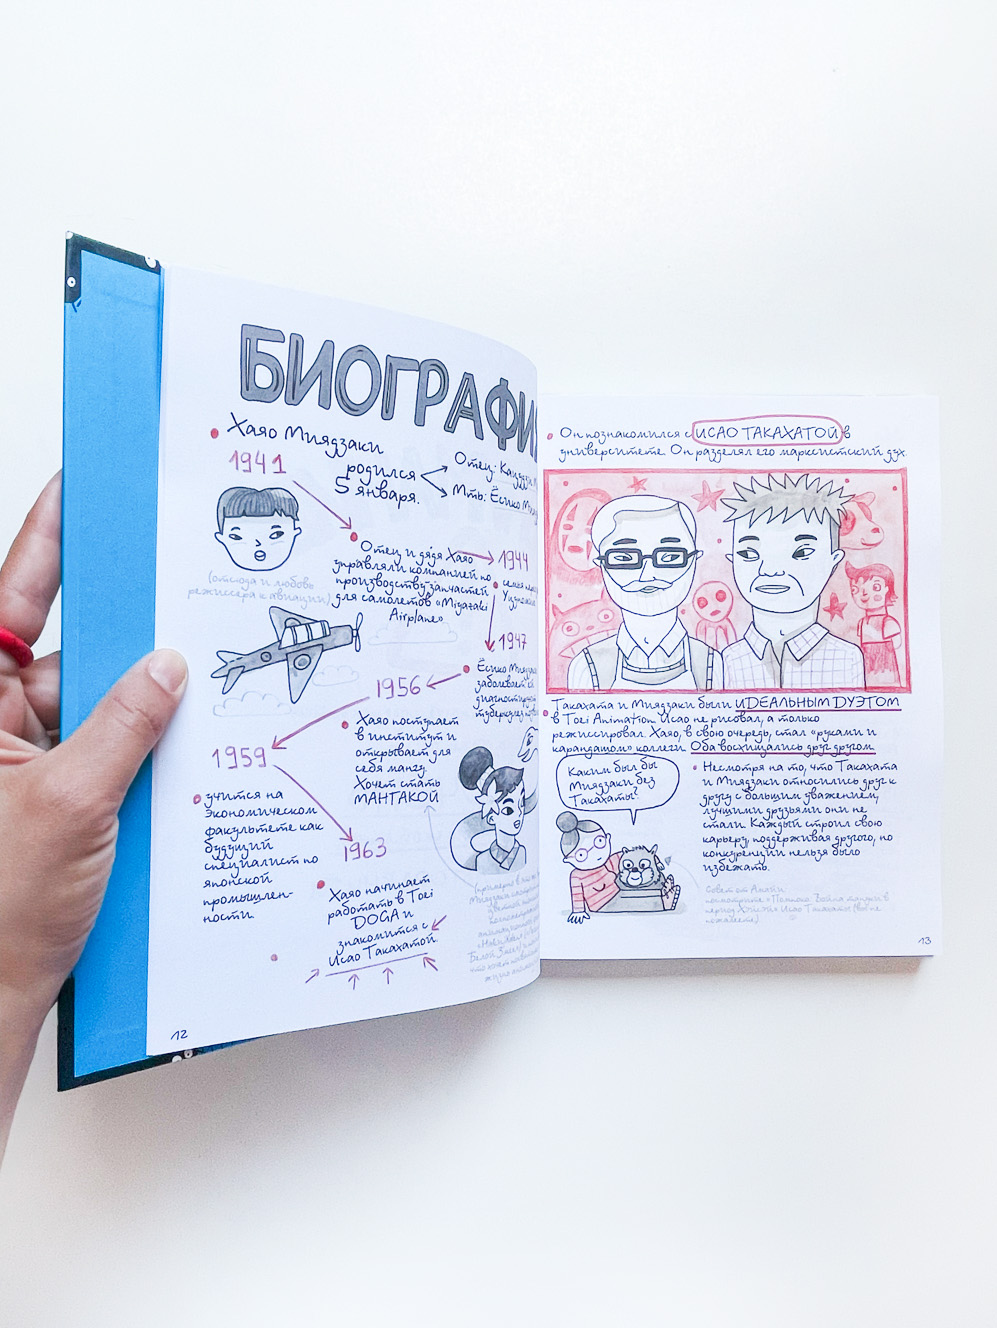 БИОГРАФИ
Хаяо Миядзаки
1941
родился
5 января.
Отец:
Мть: Ёсико
(отсюда и любовь
режиссера к авиации)
Отец и дядя Хаяо
управляли компанией по
производству запчастей
для самолетов «Miyazaki
Airplane».
1944
семья
1947
Ёсико
заболевает
туберкулез
1956
Хаяо поступает
в институт и
открывает для
себя мангу.
Хочет стать
МАНГАКОЙ
1959
учится на
экономическом
факультете как
будущий
специалист по
японской
промышлен-
ности.
1963
Хаяо начинает
работать в Toei
DOGA и
знакомится с
Исао Такахатой.
12
Он познакомился с ИСАО ТАКАХАТОЙ в
университете. Он разделял его марксистский дух.
Такахата и Миядзаки были ИДЕАЛЬНЫМ ДУЭТОМ
в Toei Animation. Исао не рисовал, а только
режиссировал. Хаяо, в свою очередь, стал «руками и
карандашом» коллеги. Оба восхищались друг другом.
Каким был бы
Миядзаки без
Такахаты?
Несмотря на то, что Такахата
и Миядзаки относились друг к
другу с большим уважением,
лучшими друзьями они не
стали. Каждый строил свою
карьеру, поддерживая другого, но
конкуренции нельзя было
избежать.
Совет от
посмотрите
Исао Такахаты
13